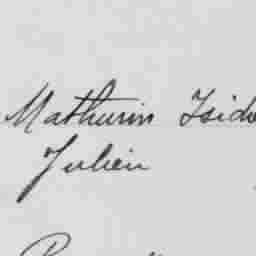 Mathurin Isido
Julien